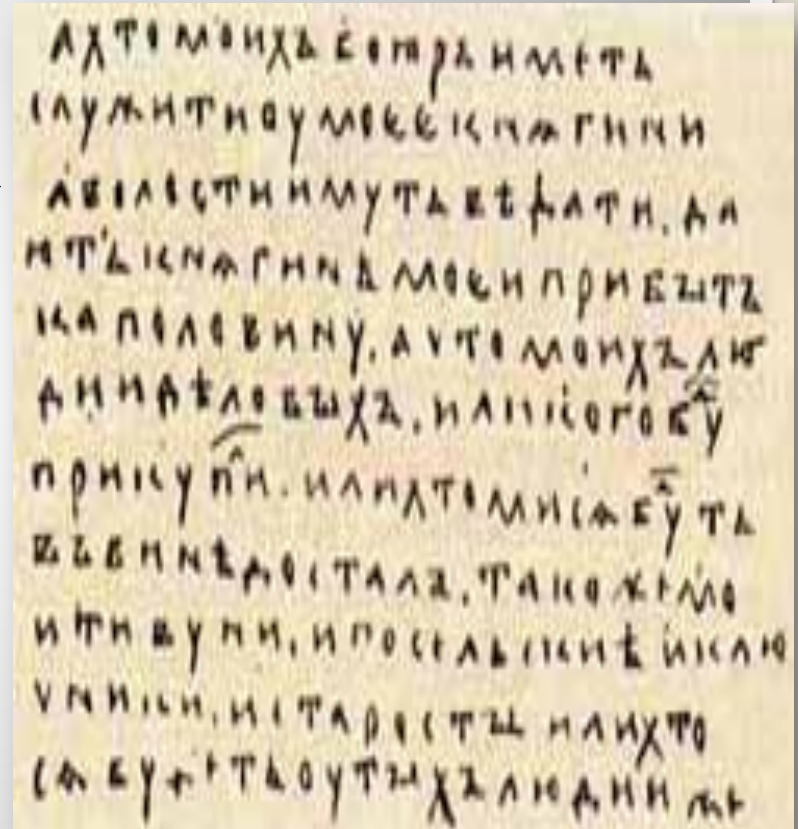 А ХТО МОИХЪ БОꙖРЪ ИМЕТЬ
СЛУЖИТИ ОУ МОЕЕ КНѦГИНИ
А ВОЛОСТИ ИМУТЬ ВѢДАТИ, ДА
ИТЬ КНѦГИНѢ МОЕИ ПРИБЫТЪ
КА ПОЛОВИНУ. А ЧТО МОИХЪ ЛЮ
ДИИ ДѢЛОВЫХЪ, ИЛИ КОГО БУᲁ
ПРИКУПИᲧ. ИЛИ ХТО МИ СѦ БУᲁТЬ
ВЪ ВИНѢ ДОСТАЛЪ, ТАКО ЖЕ МО
И ТИВУНИ, И ПОСЕЛЬСКИѢ И КЛЮ
ЧНИКИ, И СТАРОСТЫ ИЛИ ХТО
СѦ БУДЕТЬ ОУ ТЫХЪ ЛЮДИИ ЖЕ